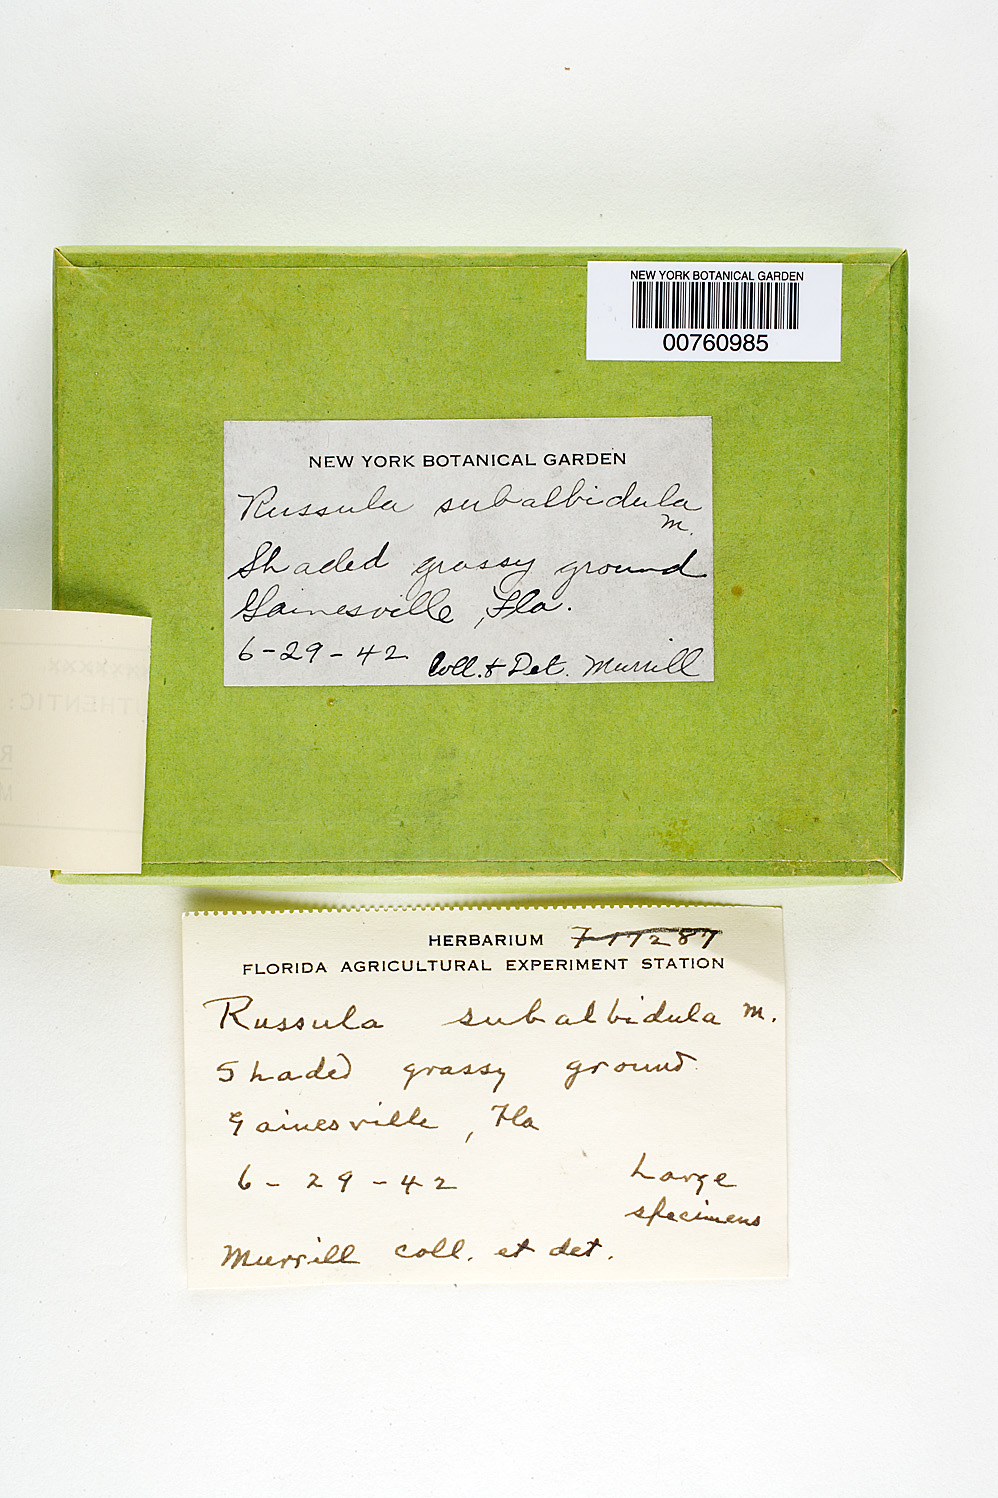 NEW YORK BOTANICAL GARDEN
00760985
NEW YORK BOTANICAL GARDEN
Russula subalbidula
M.
Shaded grassy ground
Gainesville, Fla.
6-29-42 Coll. & Det. Murrill
HERBARIUM F 17287
FLORIDA AGRICULTURAL EXPERIMENT STATION
Russula subalbidula M.
Shaded grassy ground
Gainesville, Fla
6-29-42 Large
specimens
Murrill coll. et det.